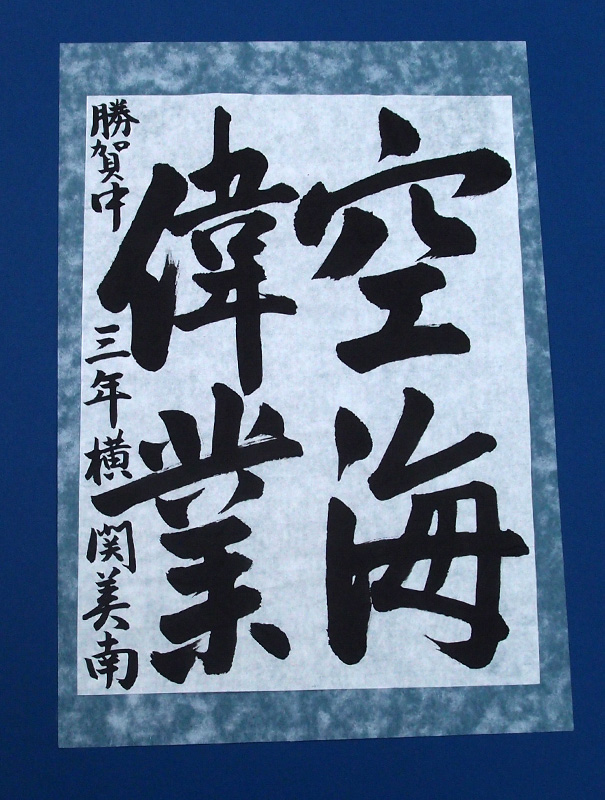 空海
偉業
勝賀中 三年 横関美南